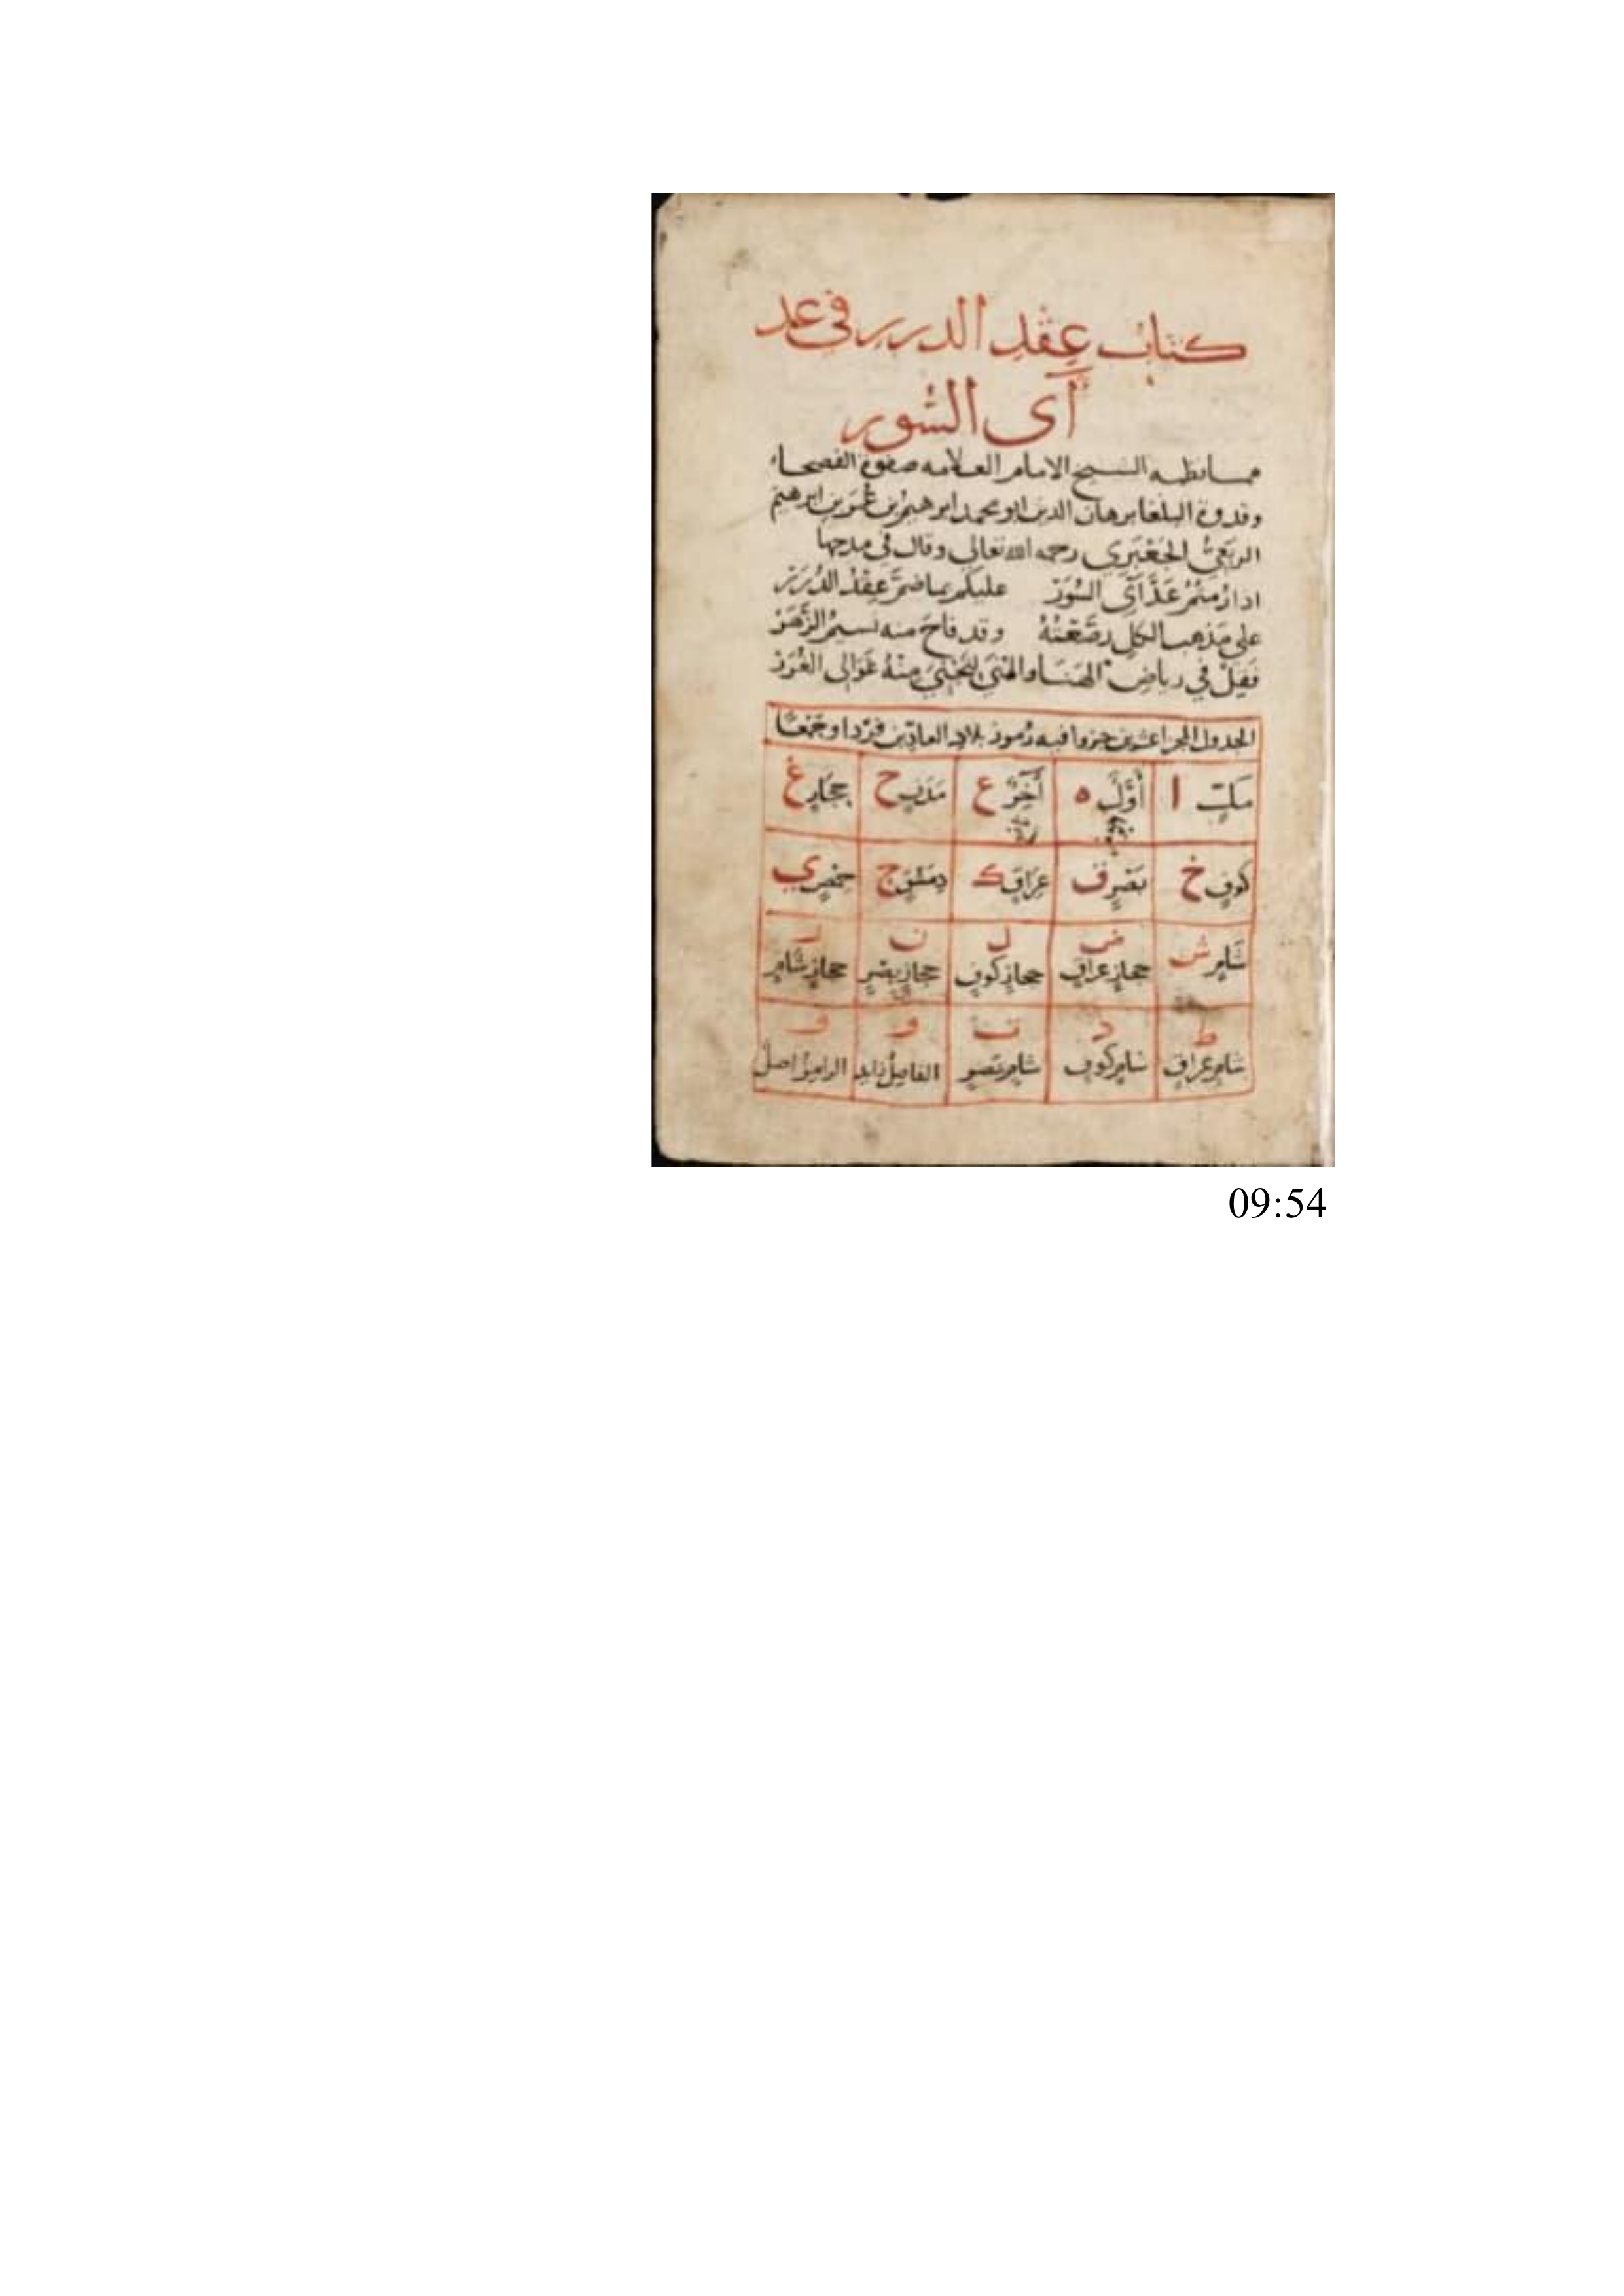 كتاب عقد الدرر في عد
آي السور
مما نظمه الشيخ الامام العلامه صفوة الفصحاء
وقدوة البلغا برهان الدين ابو محمد ابرهيم بن عمر بن ابرهيم
الربعيّ الجَعْبَرِي رحمه الله تعالى وقال في مدحها
اذا رُمتمُ عَدَّ آيِ السُّوَرْ عليكم بما ضمَّ عِقْدُ الدُّرَرْ
على مَذهب الكل رصَّعْتُهُ وقد فاحَ منه نسيمُ الزَّهَرْ
فَقِلْ في رياض الهَنَا والمنَى لتَجْتَنيَ مِنْهُ غَوَالى الغُرَرْ
الجدول المجزا عشرين جزوا فيه رُموز بلاد العادّين فَرْدا وجَمْعًا
مَكيّ ا أَوَّل ه آخِرٌ ع مَدَني ح حجازي غ
كوفي خ بَصْري ف عِرَاقي ك دِمَشقي ج حمْصي ي
شامي ش ض حجازي عراقي ل حجازي كوفي ن حجازي بصْري ر حجازي شامي
ط شامي عراقي د شامي كوفي ت شامي بَصْري و الفاصِلُ زايد و الرامز اصل